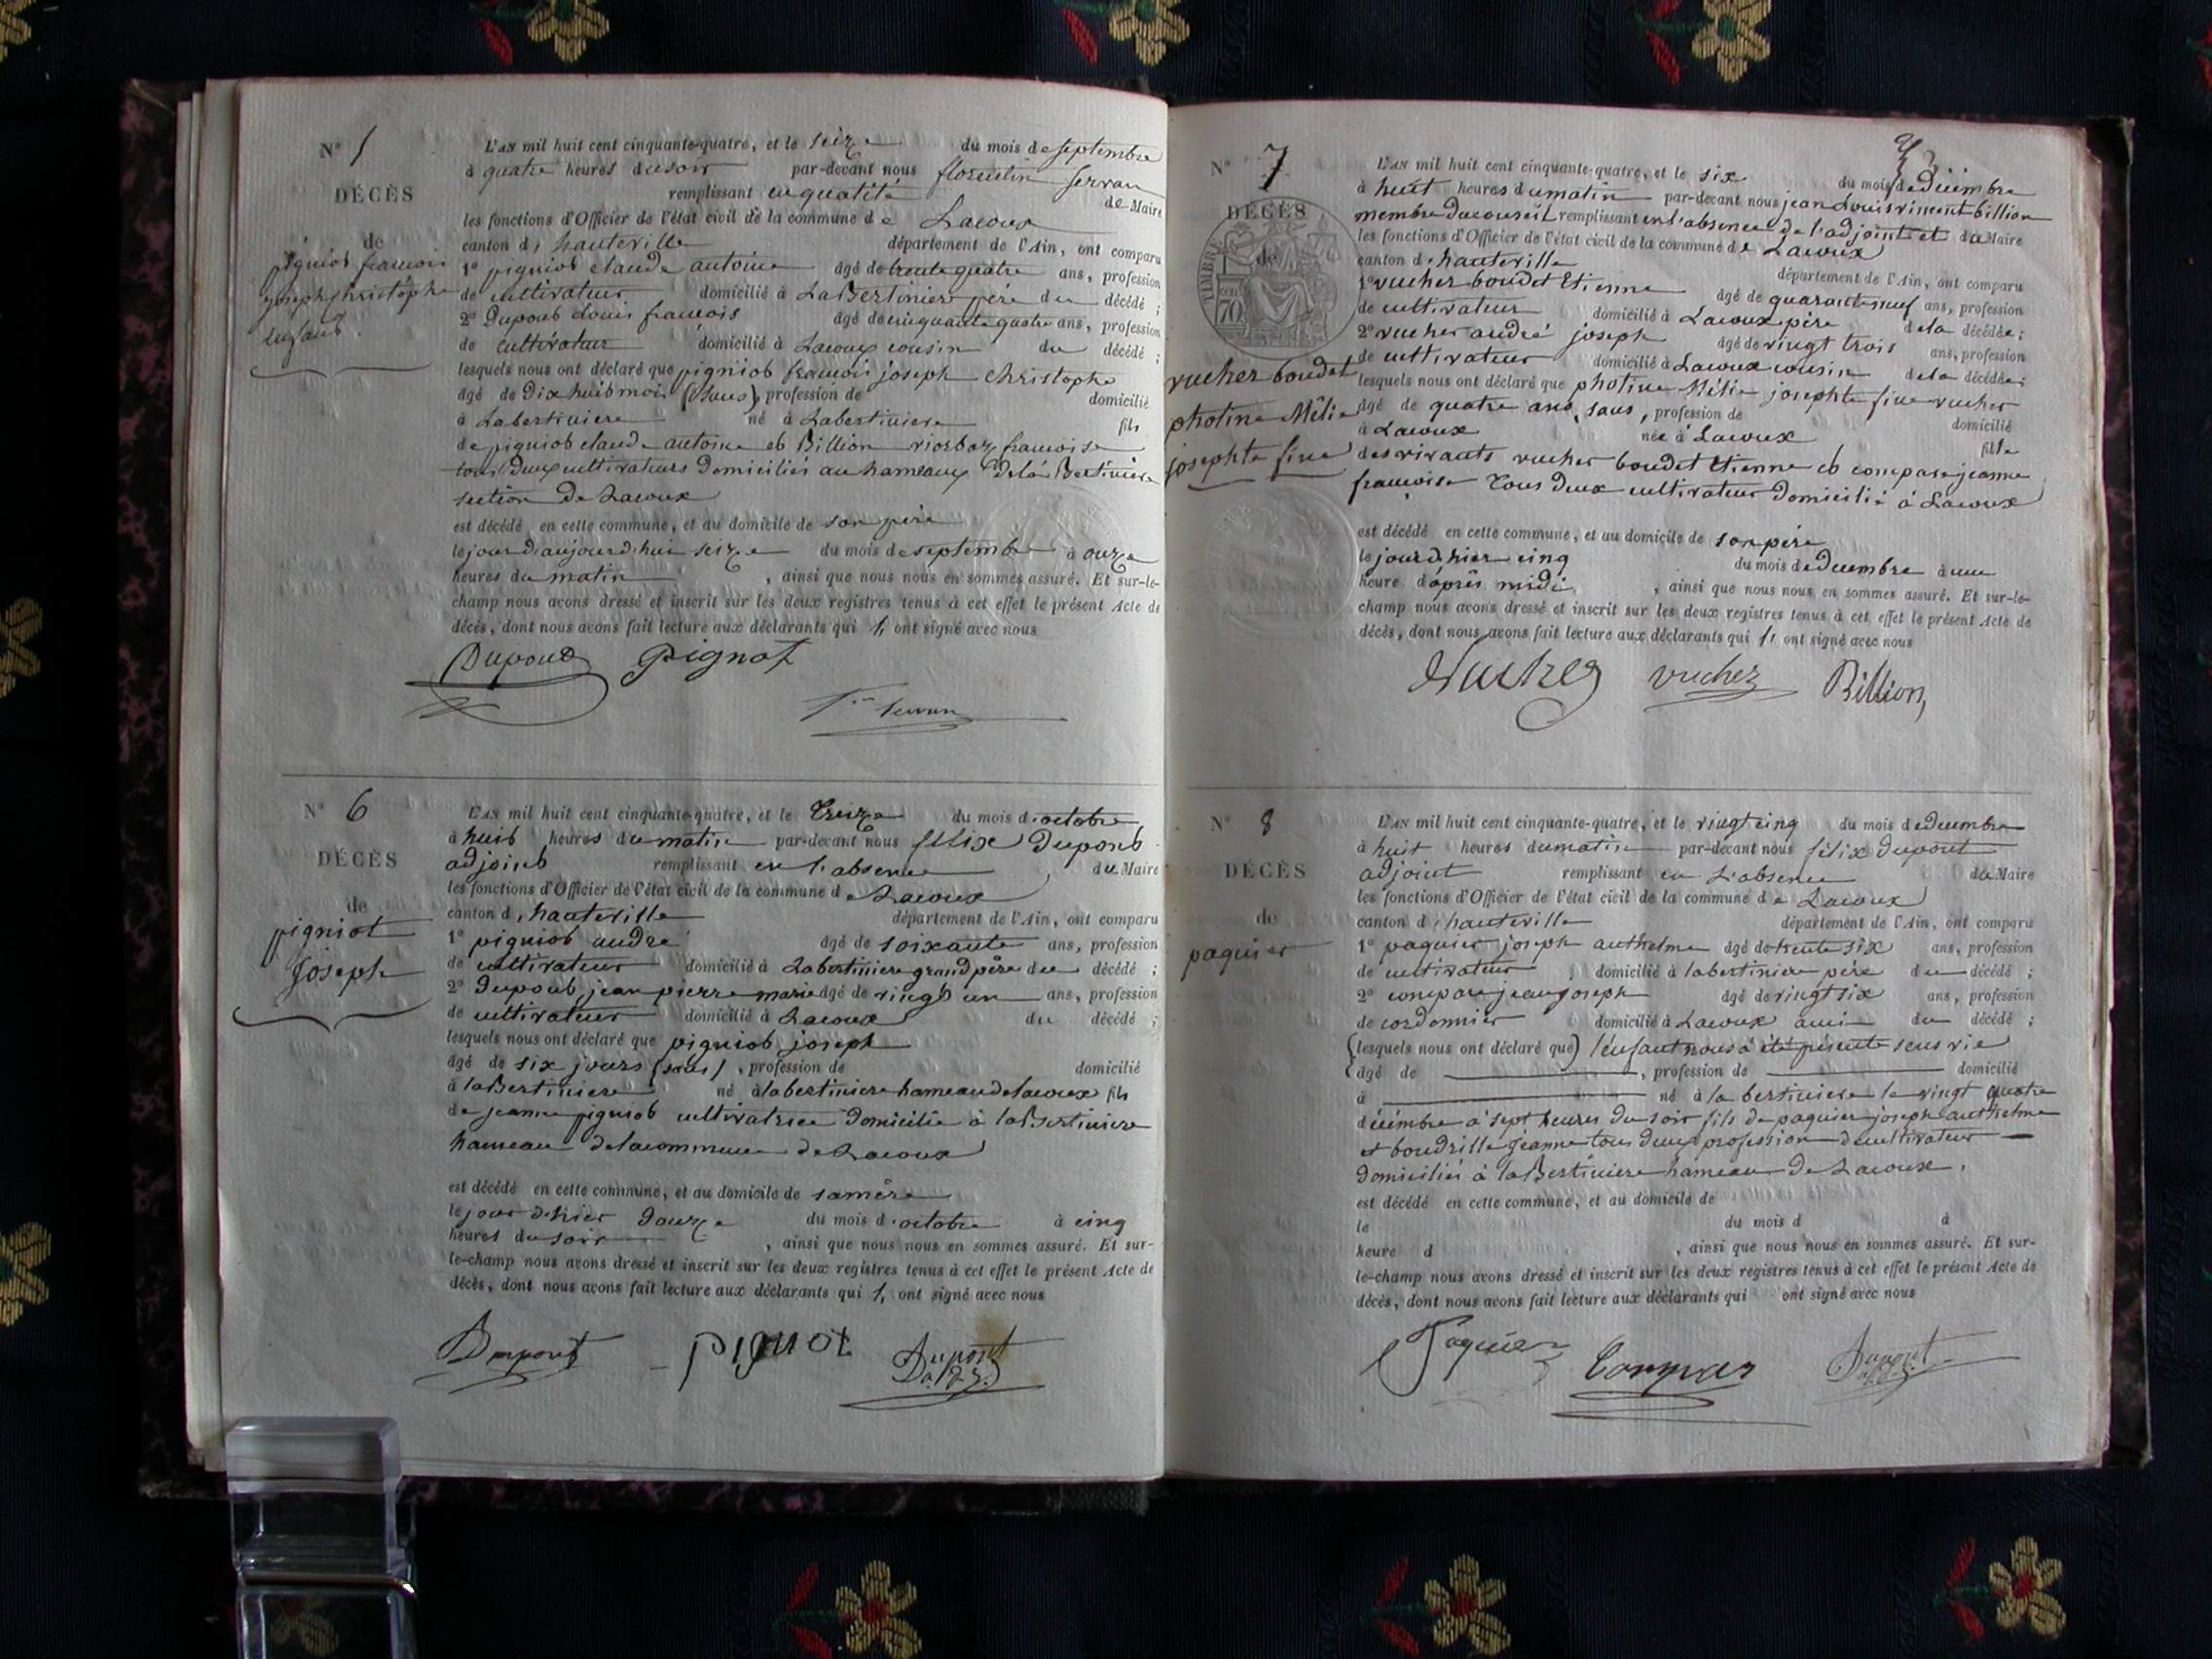 N° 5
DÉCÈS
de
pigniot francois
joseph christophe
enfant.
L'AN mil huit cent cinquante-quatre, et le seize du mois de septembre
à quatre heures du soir par-devant nous florentin Servan
remplissant en qualité de Maire
les fonctions d'Officier de l'état civil de la commune de Lacoux
canton d'hauteville département de l'Ain, ont comparu
1° pigniot claude antoine âgé de trente quatre ans, profession
de cultivateur domicilié à La Bertiniere père du décédé ;
2° Dupont Louis francois âgé de cinquante quatre ans, profession
de cultivateur domicilié à Lacoux cousin du décédé ;
lesquels nous ont déclaré que pigniot francois joseph christophe
âgé de dix huit mois (sans), profession de domicilié
à Labertiniere né à Labertiniere fils
de pigniot claude antoine et Billion françoise
tous deux cultivateurs domiciliés au hameaux de la Bertiniere
section de Lacoux
est décédé en cette commune, et au domicile de son père
le jour d'aujourd'hui seize du mois de septembre à onze
heures du matin , ainsi que nous nous en sommes assuré. Et sur-le-
champ nous avons dressé et inscrit sur les deux registres tenus à cet effet le présent Acte de
décès, dont nous avons fait lecture aux déclarants qui ont signé avec nous
Dupont Pignot
Servan
N° 6
DÉCÈS
de
pigniot
Joseph
L'AN mil huit cent cinquante-quatre, et le treize du mois d'octobre
à huit heures du matin par-devant nous félix Dupont
adjoint remplissant en l'absence du Maire
les fonctions d'Officier de l'état civil de la commune de Lacoux
canton d'hauteville département de l'Ain, ont comparu
1° pigniot andré âgé de soixante ans, profession
de cultivateur domicilié à Labertiniere grand père du décédé ;
2° Dupont jean pierre marie âgé de vingt un ans, profession
de cultivateur domicilié à Lacoux du décédé ;
lesquels nous ont déclaré que pigniot joseph
âgé de six jours (sans), profession de domicilié
à la Bertiniere né à la bertiniere hameau de lacoux fils
de jeanne pigniot cultivatrice domicilié à la Bertiniere
hameau de la commune de Lacoux
est décédé en cette commune, et au domicile de sa mère
le jour d'hier douze du mois d'octobre à cinq
heures du soir , ainsi que nous nous en sommes assuré. Et sur-
le-champ nous avons dressé et inscrit sur les deux registres tenus à cet effet le présent Acte de
décès, dont nous avons fait lecture aux déclarants qui ont signé avec nous
Dupont pignot Dupont adj.
N° 7
DÉCÈS
de
TIMBRE
70
vucher boudet
photine Mélie
josephte fine
L'AN mil huit cent cinquante-quatre, et le six du mois de décembre
à huit heures du matin par-devant nous jean Louis vincent billion
membre du conseil remplissant en l'absence de l'adjoint et du Maire
les fonctions d'Officier de l'état civil de la commune de Lacoux
canton d'hauteville département de l'Ain, ont comparu
1° vucher boudet Etienne âgé de quarante neuf ans, profession
de cultivateur domicilié à Lacoux père de la décédée ;
2° vucher andré joseph âgé de vingt trois ans, profession
de cultivateur domicilié à Lacoux cousin de la décédée ;
lesquels nous ont déclaré que photine Mélie josephte fine vucher
âgé de quatre ans, sans, profession de domicilié
à Lacoux née à Lacoux fille
des vivants vucher boudet Etienne et compare jeanne
francoise Tous deux cultivateur domicilié à Lacoux
est décédé en cette commune, et au domicile de son père
le jour d'hier cinq du mois de decembre à une
heure d'après midi , ainsi que nous nous en sommes assuré. Et sur-le-
champ nous avons dressé et inscrit sur les deux registres tenus à cet effet le présent Acte de
décès, dont nous avons fait lecture aux déclarants qui ont signé avec nous
Vucher vucher Billion,
N° 8
DÉCÈS
de
paquier
L'AN mil huit cent cinquante-quatre, et le vingt cinq du mois de decembre
à huit heures du matin par-devant nous félix Dupont
adjoint remplissant en L'absence du Maire
les fonctions d'Officier de l'état civil de la commune de Lacoux
canton d'hauteville département de l'Ain, ont comparu
1° paquier joseph anthelme âgé de trente six ans, profession
de cultivateur domicilié à labertiniere père du décédé ;
2° compare jean joseph âgé de vingt six ans, profession
de cordonnier domicilié à Lacoux ami du décédé ;
(lesquels nous ont déclaré que) l'enfant nous à été présenté sens vie
âgé de , profession de domicilié
à né à la bertiniere le vingt quatre
décembre à sept heures du soir fils de paquier joseph anthelme
et boudrille Jeanne tous deux profession de cultivateur
domiciliés à la Bertiniere hameau de Lacoux.
est décédé en cette commune, et au domicile de
le du mois d à
heure d , ainsi que nous nous en sommes assuré. Et sur-
le-champ nous avons dressé et inscrit sur les deux registres tenus à cet effet le présent Acte de
décès, dont nous avons fait lecture aux déclarants qui ont signé avec nous
Paquier Compar Dupont adj.